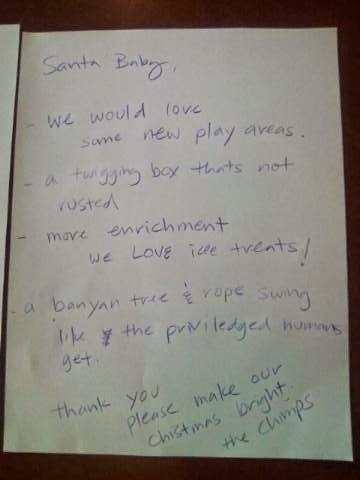 Santa Baby,
- we would love
some new play areas.
- a twigging box thats not
rusted
- more enrichment
we LOVE icee treats!
- a banyan tree & rope swing
like the priviledged humans
get.
thank you
please make our
christmas bright.
the chimps